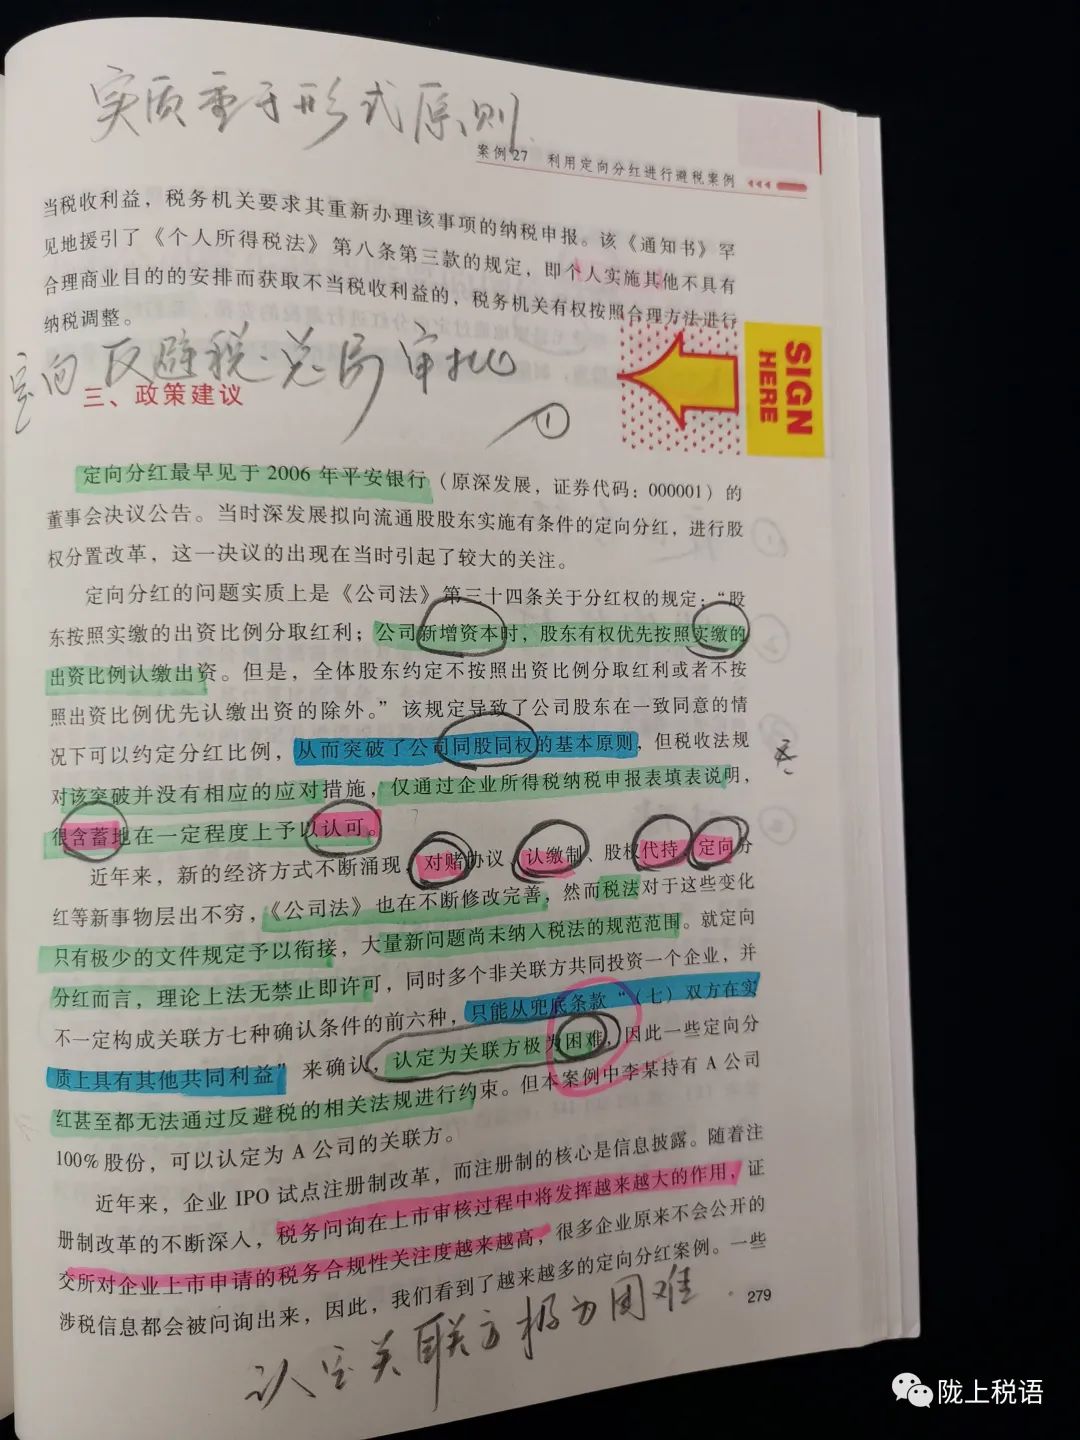 实质重于形式原则
案例27 利用定向分红进行避税案例
当税收利益，税务机关要求其重新办理该事项的纳税申报。该《通知书》罕
见地援引了《个人所得税法》第八条第三款的规定，即个人实施其他不具有
合理商业目的的安排而获取不当税收利益的，税务机关有权按照合理方法进行
纳税调整。
定向反避税·总局审批
①
SIGN
HERE
三、政策建议
定向分红最早见于2006年平安银行（原深发展，证券代码：000001）的
董事会决议公告。当时深发展拟向流通股股东实施有条件的定向分红，进行股
权分置改革，这一决议的出现在当时引起了较大的关注。
定向分红的问题实质上是《公司法》第三十四条关于分红权的规定：“股
东按照实缴的出资比例分取红利；公司新增资本时，股东有权优先按照实缴的
出资比例认缴出资。但是，全体股东约定不按照出资比例分取红利或者不按
照出资比例优先认缴出资的除外。”该规定导致了公司股东在一致同意的情
况下可以约定分红比例，从而突破了公司同股同权的基本原则，但税收法规
对该突破并没有相应的应对措施，仅通过企业所得税纳税申报表填表说明，
很含蓄地在一定程度上予以认可。
近年来，新的经济方式不断涌现，对赌协议、认缴制、股权代持、定向分
红等新事物层出不穷，《公司法》也在不断修改完善，然而税法对于这些变化
只有极少的文件规定予以衔接，大量新问题尚未纳入税法的规范范围。就定向
分红而言，理论上法无禁止即许可，同时多个非关联方共同投资一个企业，并
不一定构成关联方七种确认条件的前六种，只能从兜底条款“（七）双方在实
质上具有其他共同利益”来确认，认定为关联方极为困难，因此一些定向分
红甚至都无法通过反避税的相关法规进行约束。但本案例中李某持有A公司
100%股份，可以认定为A公司的关联方。
近年来，企业IPO试点注册制改革，而注册制的核心是信息披露。随着注
册制改革的不断深入，税务问询在上市审核过程中将发挥越来越大的作用，证
交所对企业上市申请的税务合规性关注度越来越高，很多企业原来不会公开的
涉税信息都会被问询出来，因此，我们看到了越来越多的定向分红案例。一些
279
认定关联方极为困难
陇上税语